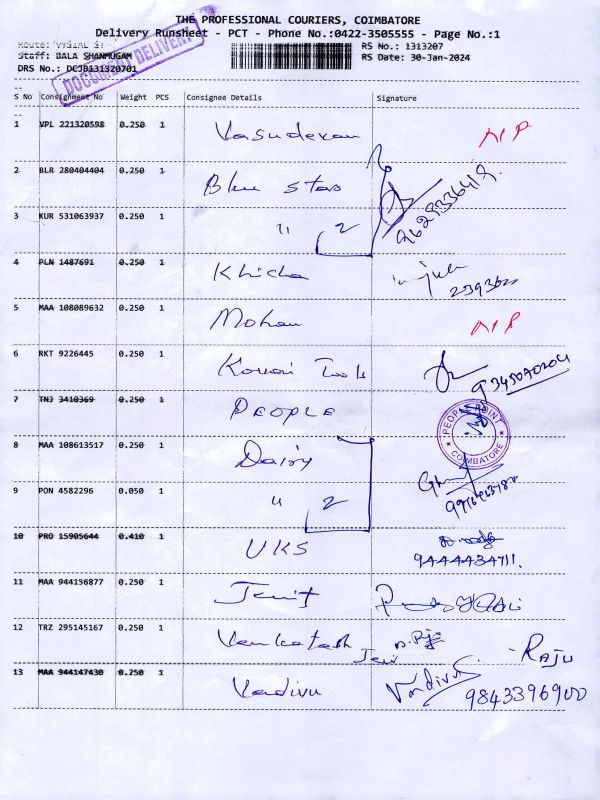 THE PROFESSIONAL COURIERS, COIMBATORE
Delivery Runsheet - PCT - Phone No.:0422-3505555 - Page No.:1
Staff: BALA SHANMUGAM
RS No.: 1313207
DRS No.: DCJB131320701
RS Date: 30-Jan-2024
DOCUMENT DELIVERY
S No Consignment No Weight PCS Consignee Details Signature
1 VPL 221320598 0.250 1 Vasudevan N/P
2 BLR 280404404 0.250 1 Blue star 9629336419
3 KUR 531063937 0.250 1 " 2
4 PLN 1487691 0.250 1 Khicha
5 MAA 108089632 0.250 1 Mohan N/P
6 RKT 9226445 0.250 1 Kovai Tools
7 TNJ 3410369 0.250 1 PEOPLE PEOPLE POINT COIMBATORE
8 MAA 108613517 0.250 1 Dairy
9 PON 4582296 0.050 1 " 2
10 PRO 15905644 0.410 1 UKS 9444434711.
11 MAA 944156877 0.250 1 Jenit
12 TRZ 295145167 0.250 1 Venkatesh - RAJU
13 MAA 944147430 0.250 1 Vadivu Vadivu 9843396900